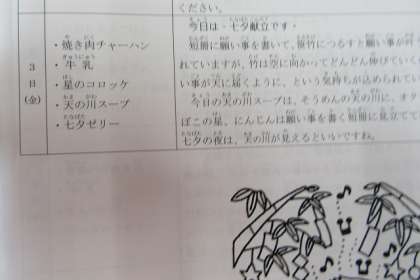 ください。
今日は・七夕献立です・
・焼き肉チャーハン
短冊に願い事を書いて、笹竹につるすと願い事が
・牛乳
れていますが、竹は空に向かってどんどん伸びていく
3日(金)
・星のコロッケ
い事が天に届くように、という気持ちが込められて
・天の川スープ
今日の天の川スープは、そうめんの天の川に、オク
・七夕ゼリー
ぼこの星、にんじんは願い事を書く短冊に見立てて
七夕の夜は、天の川が見えるといいですね。